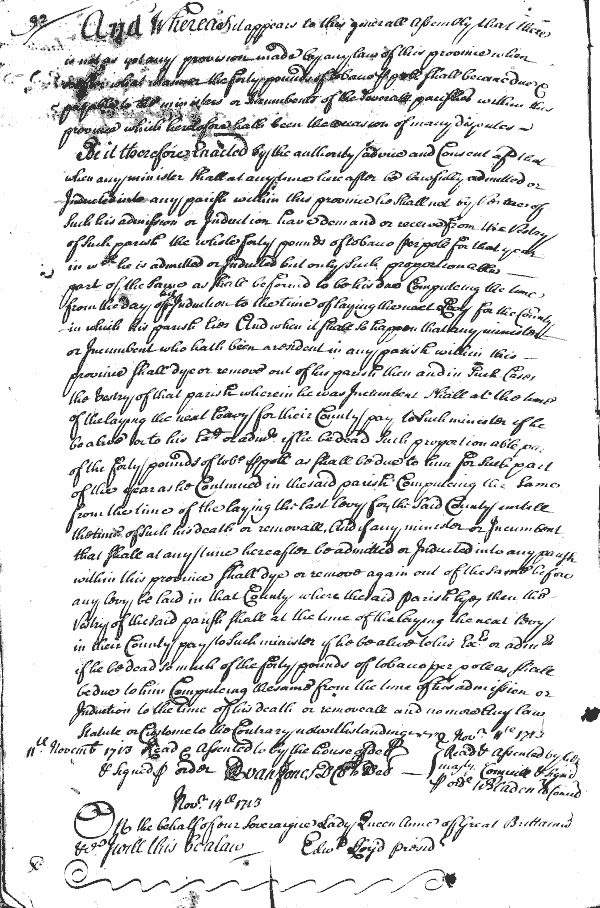 92
And Whereas it appears to this generall Assembly that there
is not as yet any provision made by any law of this province when
what manner the forty pounds of tobaco p pole shall become due &
payable to the ministers or Incumbents of the severall parishes within this
province which heretofore hath been the occasion of many disputes
Be it therefore Enacted by the authority advice and Consent afd that
when any minister shall at any time hereafter be lawfully admitted or
Inducted into any parish within this province he shall not by vertue of
Such his admission or Induction have demand or receive from the Vestry
of Such parish the whole forty pounds of tobaco p pole for that year
in wch he is admitted or Inducted but only Such proportionable
part of the Same as shall be found to be his due Computing the time
from the day of his Induction to the time of laying the next Levy for the County
in which his parish lies And when it shall so happen that any minister
or Incumbent who hath been a resident in any parish within this
province shall dye or remove out of his parish then and in Such Cases
the Vestry of that parish wherein he was Incumbent shall at the time
of the laying the next leavy for their County pay to Such minister if he
be alive or to his Exrs or admrs if he be dead Such proportionable part
of the forty pounds of tobo p pole as shall be due to him for Such part
of the year as he Continued in the said parish Computing the Same
from the time of the laying the last levy for the Said County untill
the time of Such his death or removall, And if any minister or Incumbent
that shall at any time hereafter be admitted or Inducted into any parish
within this province shall dye or remove again out of the Same before
any levy be laid in that County where the said parish lyes then the
Vestry of the said parish shall at the time of the laying the next levy
in their County pay to Such minister if he be alive or to his Exrs or admrs
if he be dead so much of the forty pounds of tobacco per pole as shall
be due to him Computeing the same from the time of his admission or
Induction to the time of his death or removeall and no more Any law
Statute or Custome to the Contrary notwithstanding
11th Novembr 1713 Read & Assented to by the house of Del
& Signed p order Evan Jones
Novr 11th 1713
Read & Assented by her
majtys Councill & Signd
p order W Bladen Cl Council
Novr 14th 1713
On the behalf of our Sovereigne Lady Queen Anne of Great Brittain
&c I will this be a law
Edwd Lloyd Presidt